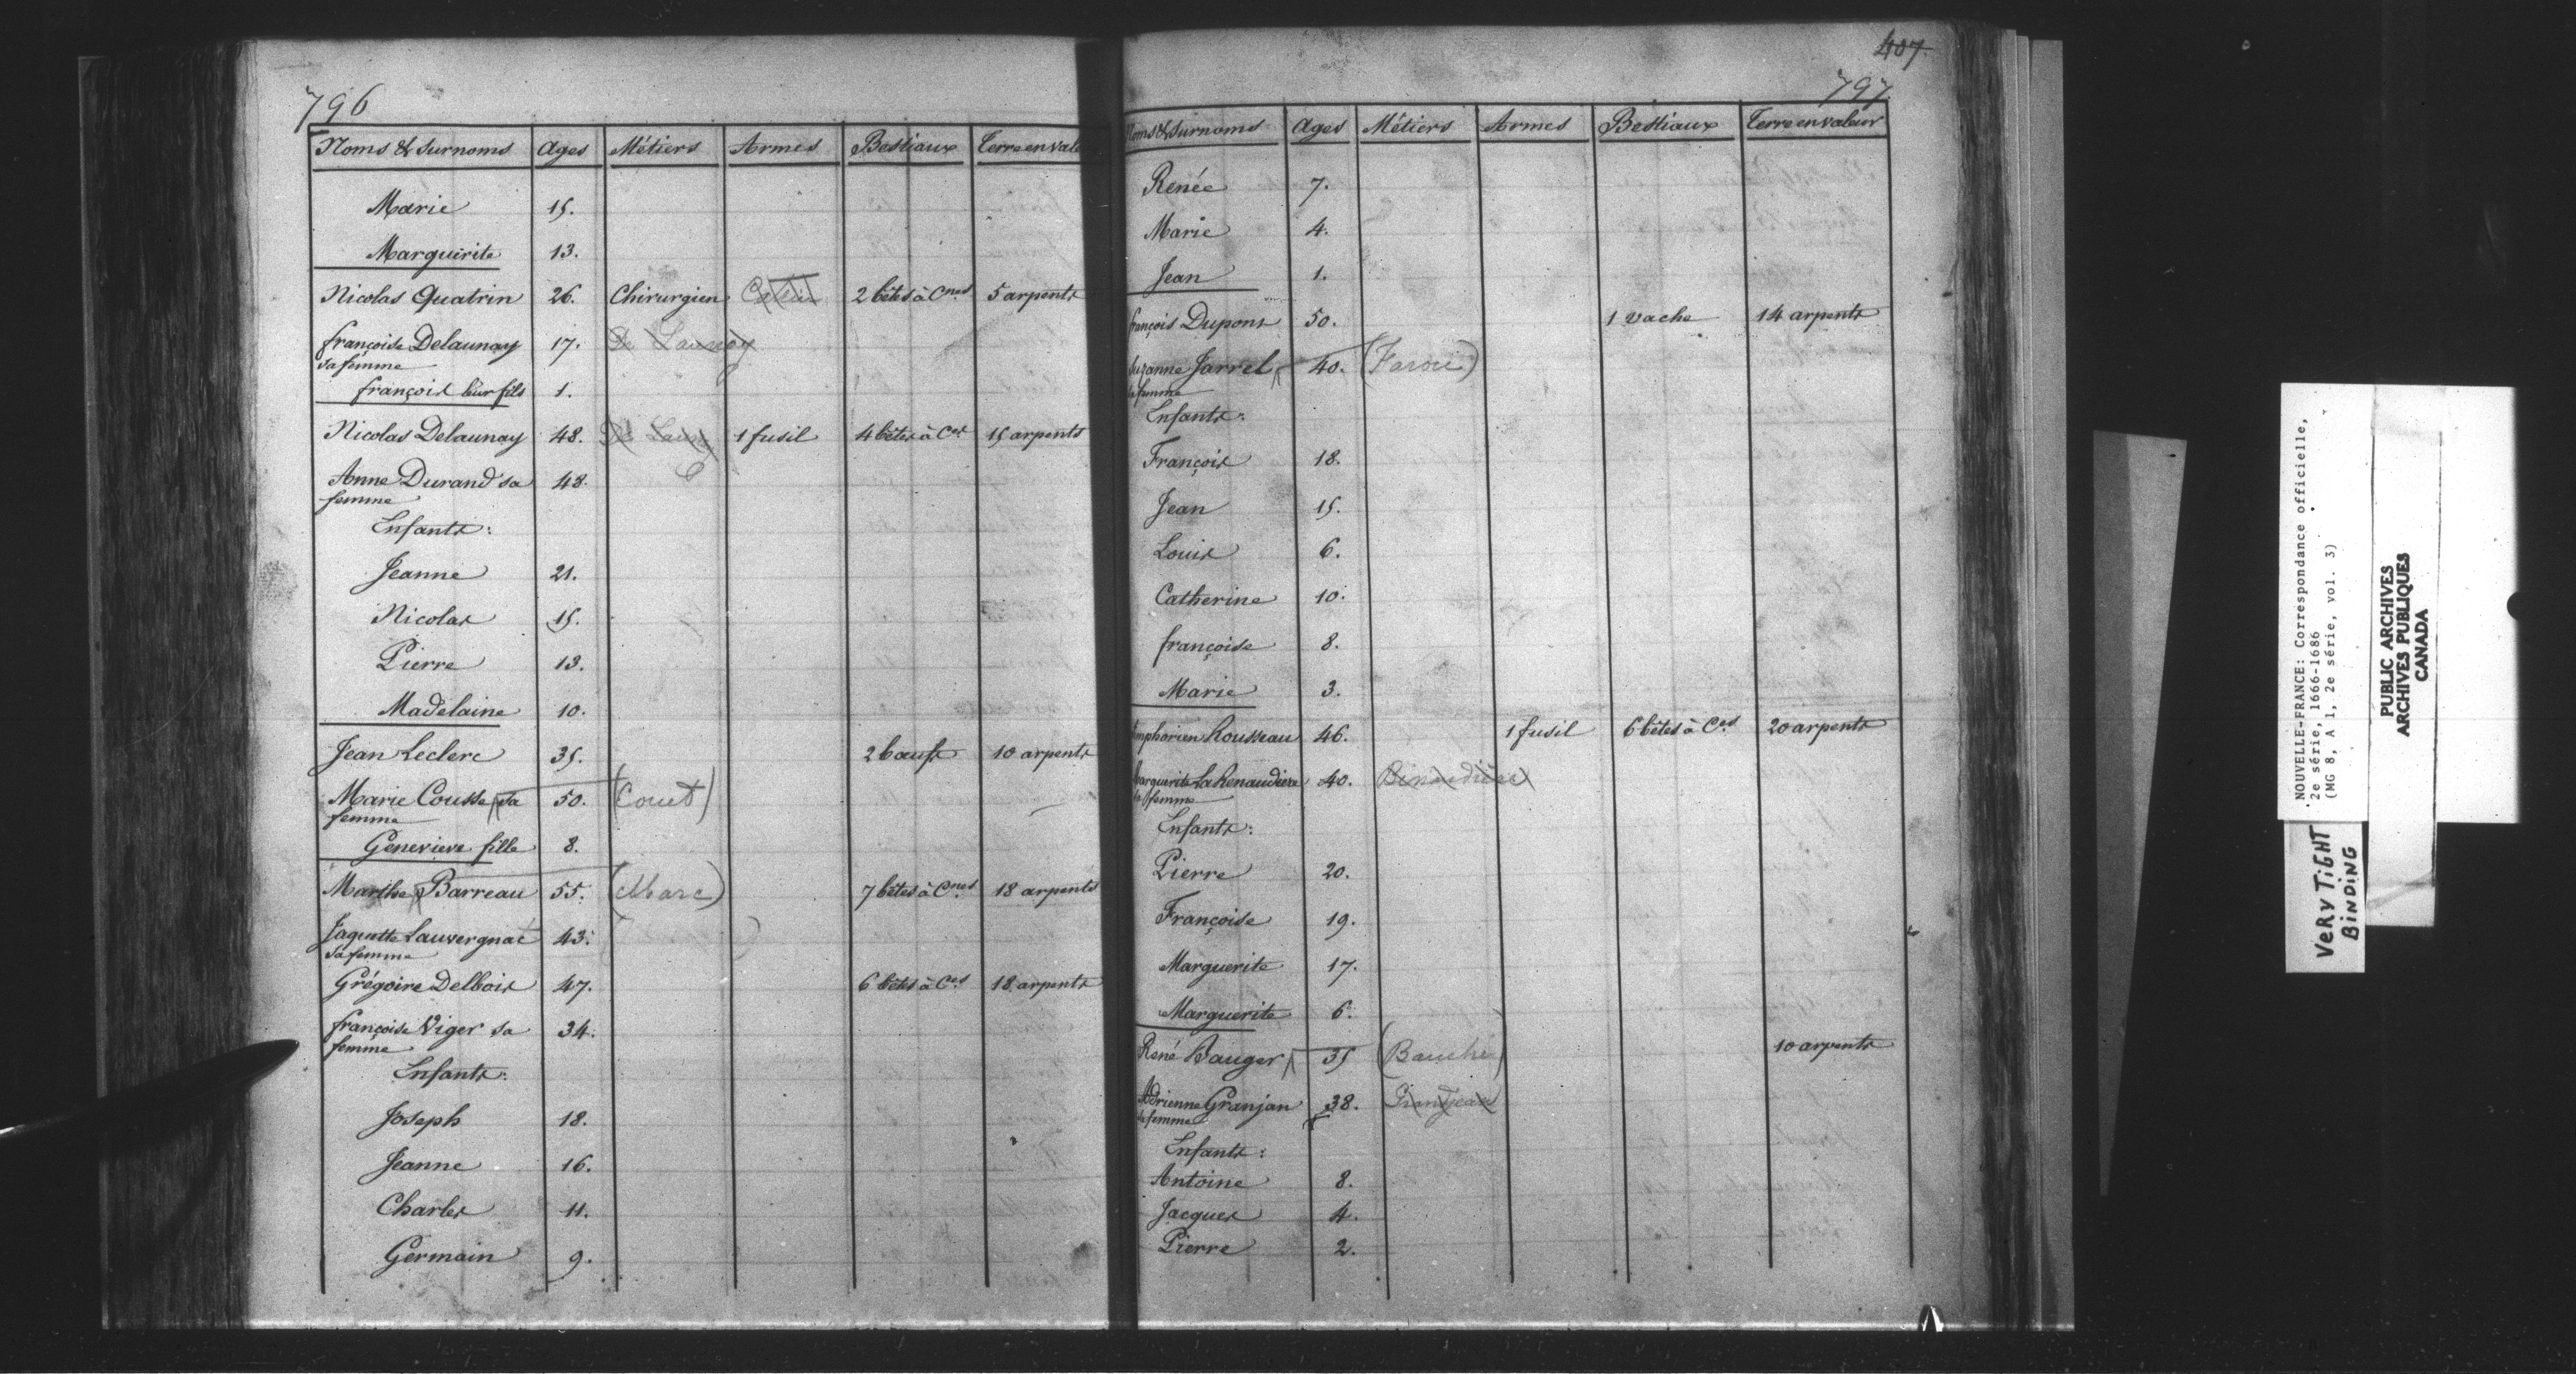 796
Noms & Surnoms Ages Métiers Armes Bestiaux Terre en vale
Marie 15.
Marguerite 13.
Nicolas Quatrin 26. Chirurgien 2 bêtes à Cnes 5 arpents
françoise Delaunay 17. De Launay
sa femme
françois leur fils 1.
Nicolas Delaunay 48. De Launay 1 fusil 4 bêtes à Ces 15 arpents
Anne Durand sa 48.
femme
Enfants:
Jeanne 21.
Nicolas 15.
Pierre 13.
Madelaine 10.
Jean Leclerc 35. 2 bœufs 10 arpents
Marie Cousse sa 50. (Couet)
femme
Genevieve fille 8.
Marthe Barreau 55. (Marc) 7 bêtes à Cnes 18 arpents
Jaquette Lauvergnat 43.
sa femme
Grégoire Delbois 47. 6 bêtes à Ces 18 arpents
françoise Viger sa 34.
femme
Enfants:
Joseph 18.
Jeanne 16.
Charles 11.
Germain 9.
407.
797
Noms & Surnoms Ages Métiers Armes Bestiaux Terre en valeur
Renée 7.
Marie 4.
Jean 1.
françois Dupont 50. 1 vache 14 arpents
Suzanne Jarrel 40.
sa femme
Enfants:
François 18.
Jean 15.
Louis 6.
Catherine 10.
françoise 8.
Marie 3.
mphorien Rousseau 46. 1 fusil 6 bêtes à Ces 20 arpents
Marguerite La Renaudiere 40.
sa femme
Enfants:
Pierre 20.
Françoise 19.
Marguerite 17.
Marguerite 6.
René Bauger 35 (Bauché) 10 arpents
Adrienne Granjan 38. Grandjean
sa femme
Enfants:
Antoine 8.
Jacques 4.
Pierre 2.
NOUVELLE-FRANCE: Correspondance officielle,
2e série, 1666-1686
(MG 8, A 1, 2e série, vol. 3)
PUBLIC ARCHIVES
ARCHIVES PUBLIQUES
CANADA
VERY TIGHT
BINDING